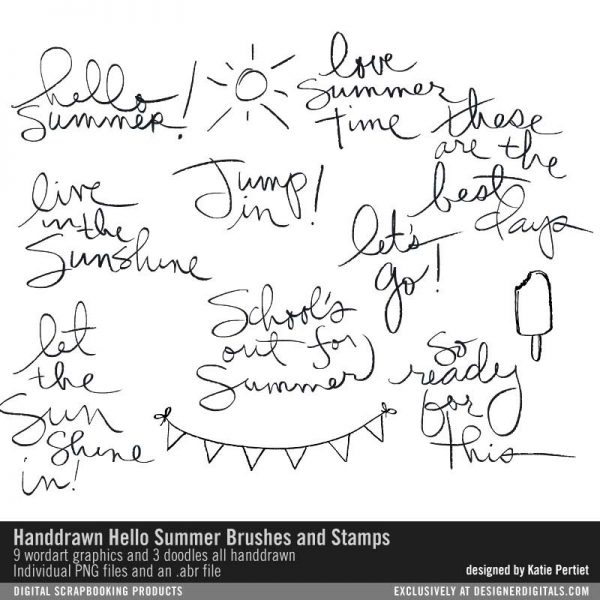 hello
summer!
love
summer
time
these
are the
best
days
live
in the
Sunshine
Jump
in!
let's
go!
let
the
Sun
Shine
in!
School's
out for
Summer
So
ready
for
this
Handdrawn Hello Summer Brushes and Stamps
9 wordart graphics and 3 doodles all handdrawn
Individual PNG files and an .abr file
designed by Katie Pertiet
DIGITAL SCRAPBOOKING PRODUCTS
EXCLUSIVELY AT DESIGNERDIGITALS.COM